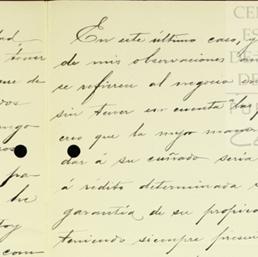 dad
tener
que de
vos
ngo
ros
pa
ha
toy
com
En este último caso, y
de mis observaciones
se refieren al negocio
sin tener en cuenta las
creo que la mejor maner
dar á su cuñado sería
á rédito determinada
garantía de su propied
teniendo siempre presen
CE
ES
DE
DE